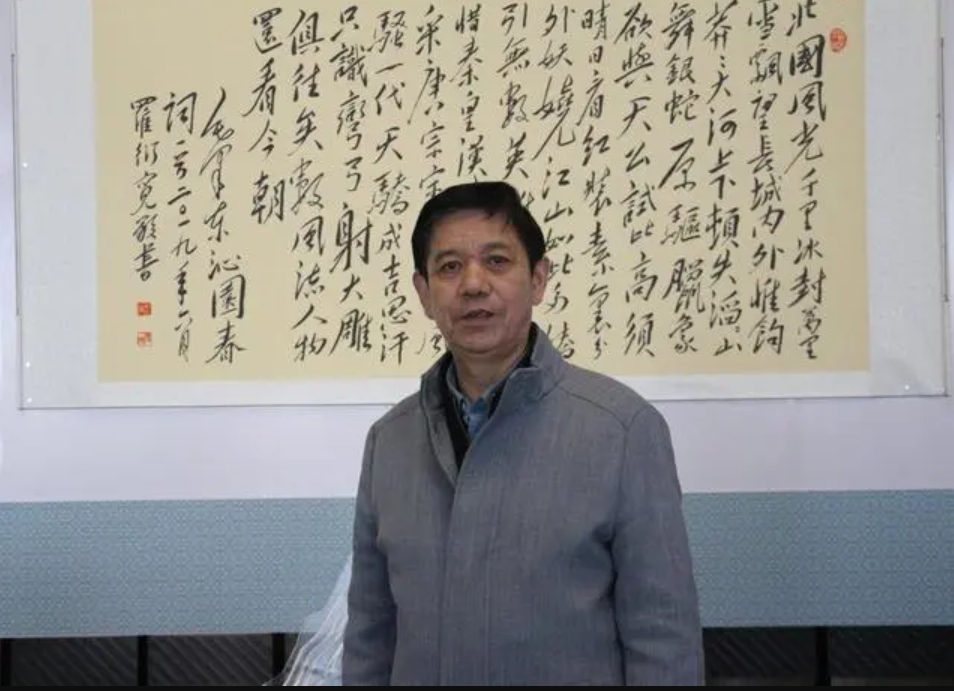 北國風光千里冰封萬里
雪飄望長城内外惟餘
莽々大河上下頓失滔々山
舞銀蛇原驅臘象
欲與天公試比高須
晴日看紅裝素裹分
外妖嬈江山如此多嬌
引無數英
惜秦皇漢
采唐宗宋
騷一代天驕成吉思汗
只識彎弓射大雕
俱往矣數風流人物
還看今朝
毛澤東沁園春
詞一首二〇一九年六月
羅衍寬 書